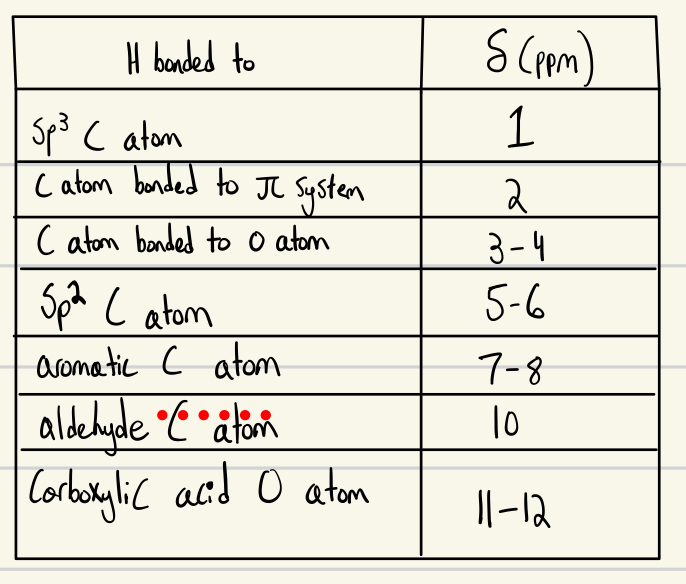 H bonded to δ (ppm)
Sp³ C atom 1
C atom bonded to π system 2
C atom bonded to O atom 3-4
Sp² C atom 5-6
aromatic C atom 7-8
aldehyde C atom 10
Carboxylic acid O atom 11-12